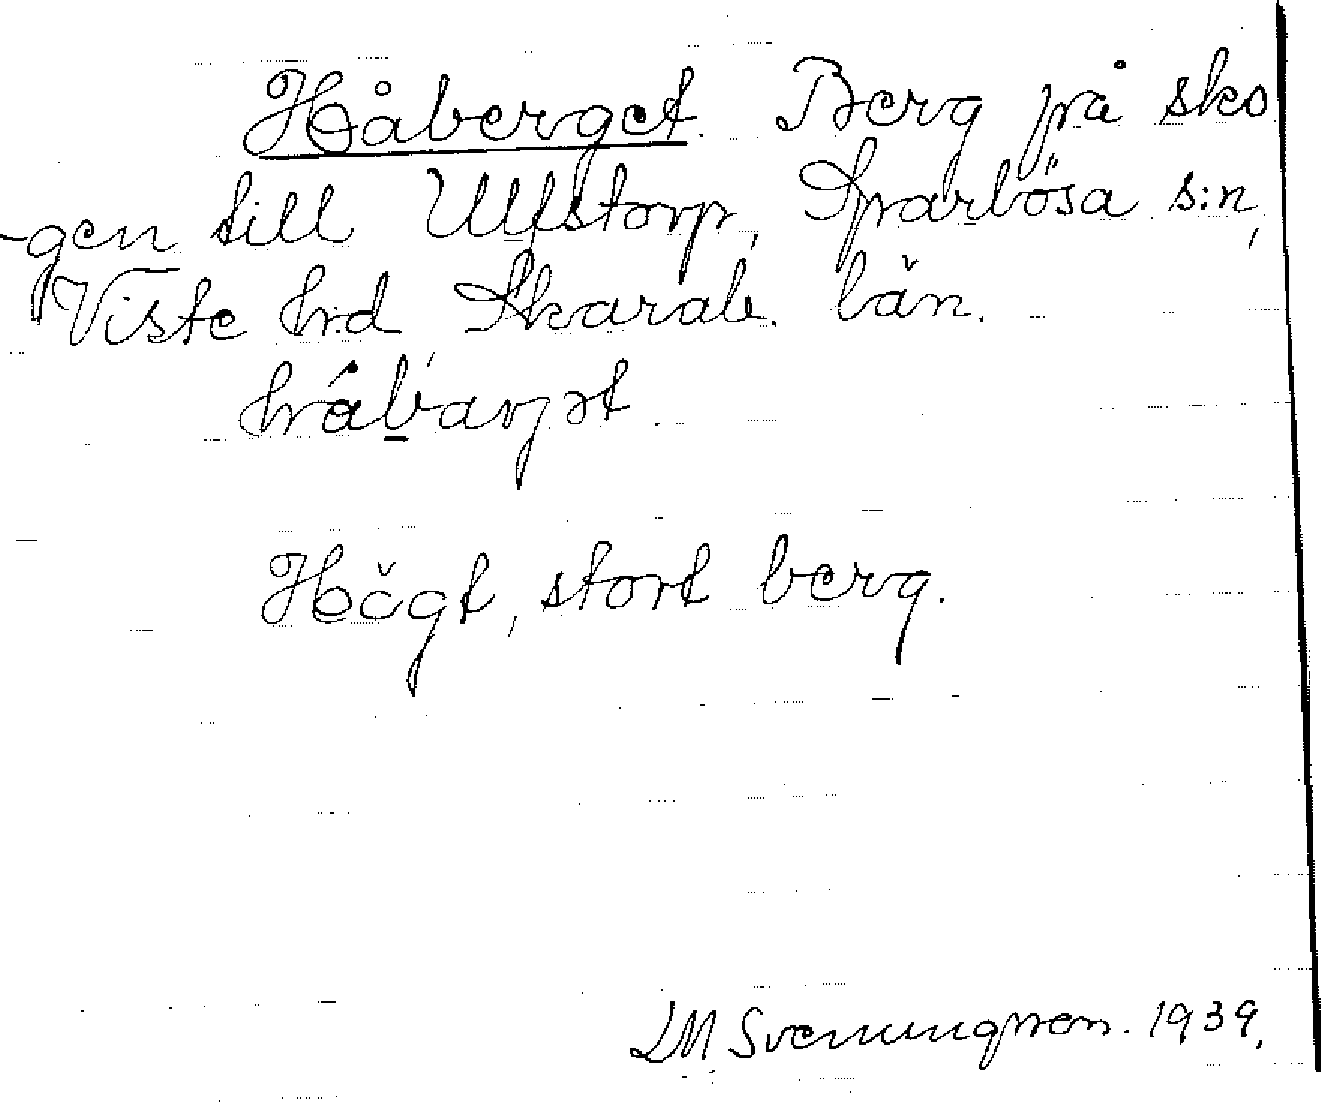 Håberget. Berg på sko
-gen till Ulfstorp, Sparlösa s:n,
Viste hrd Skarab. län.
Högt, stort berg.
LM Svenungsson. 1939.